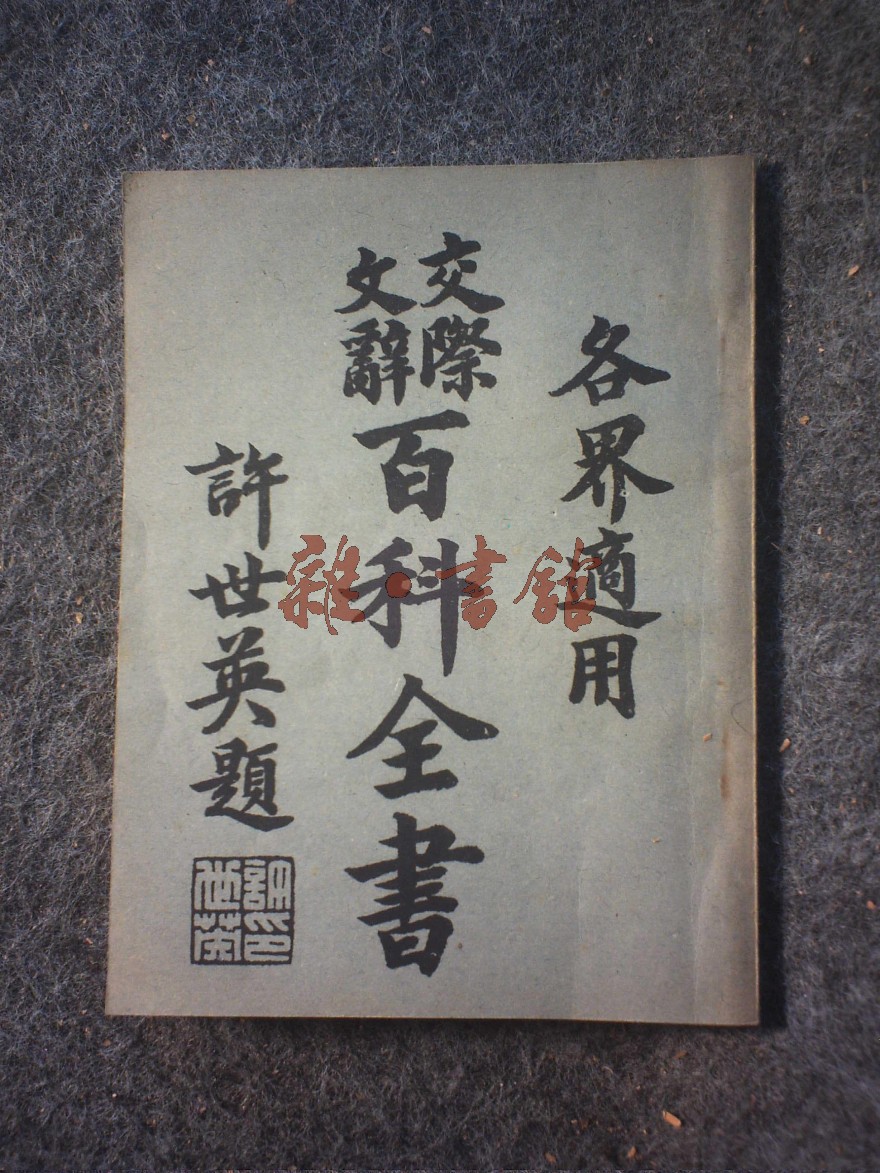 各界適用
交際
文辭
百科全書
許世英題
許印世英
雜·書館